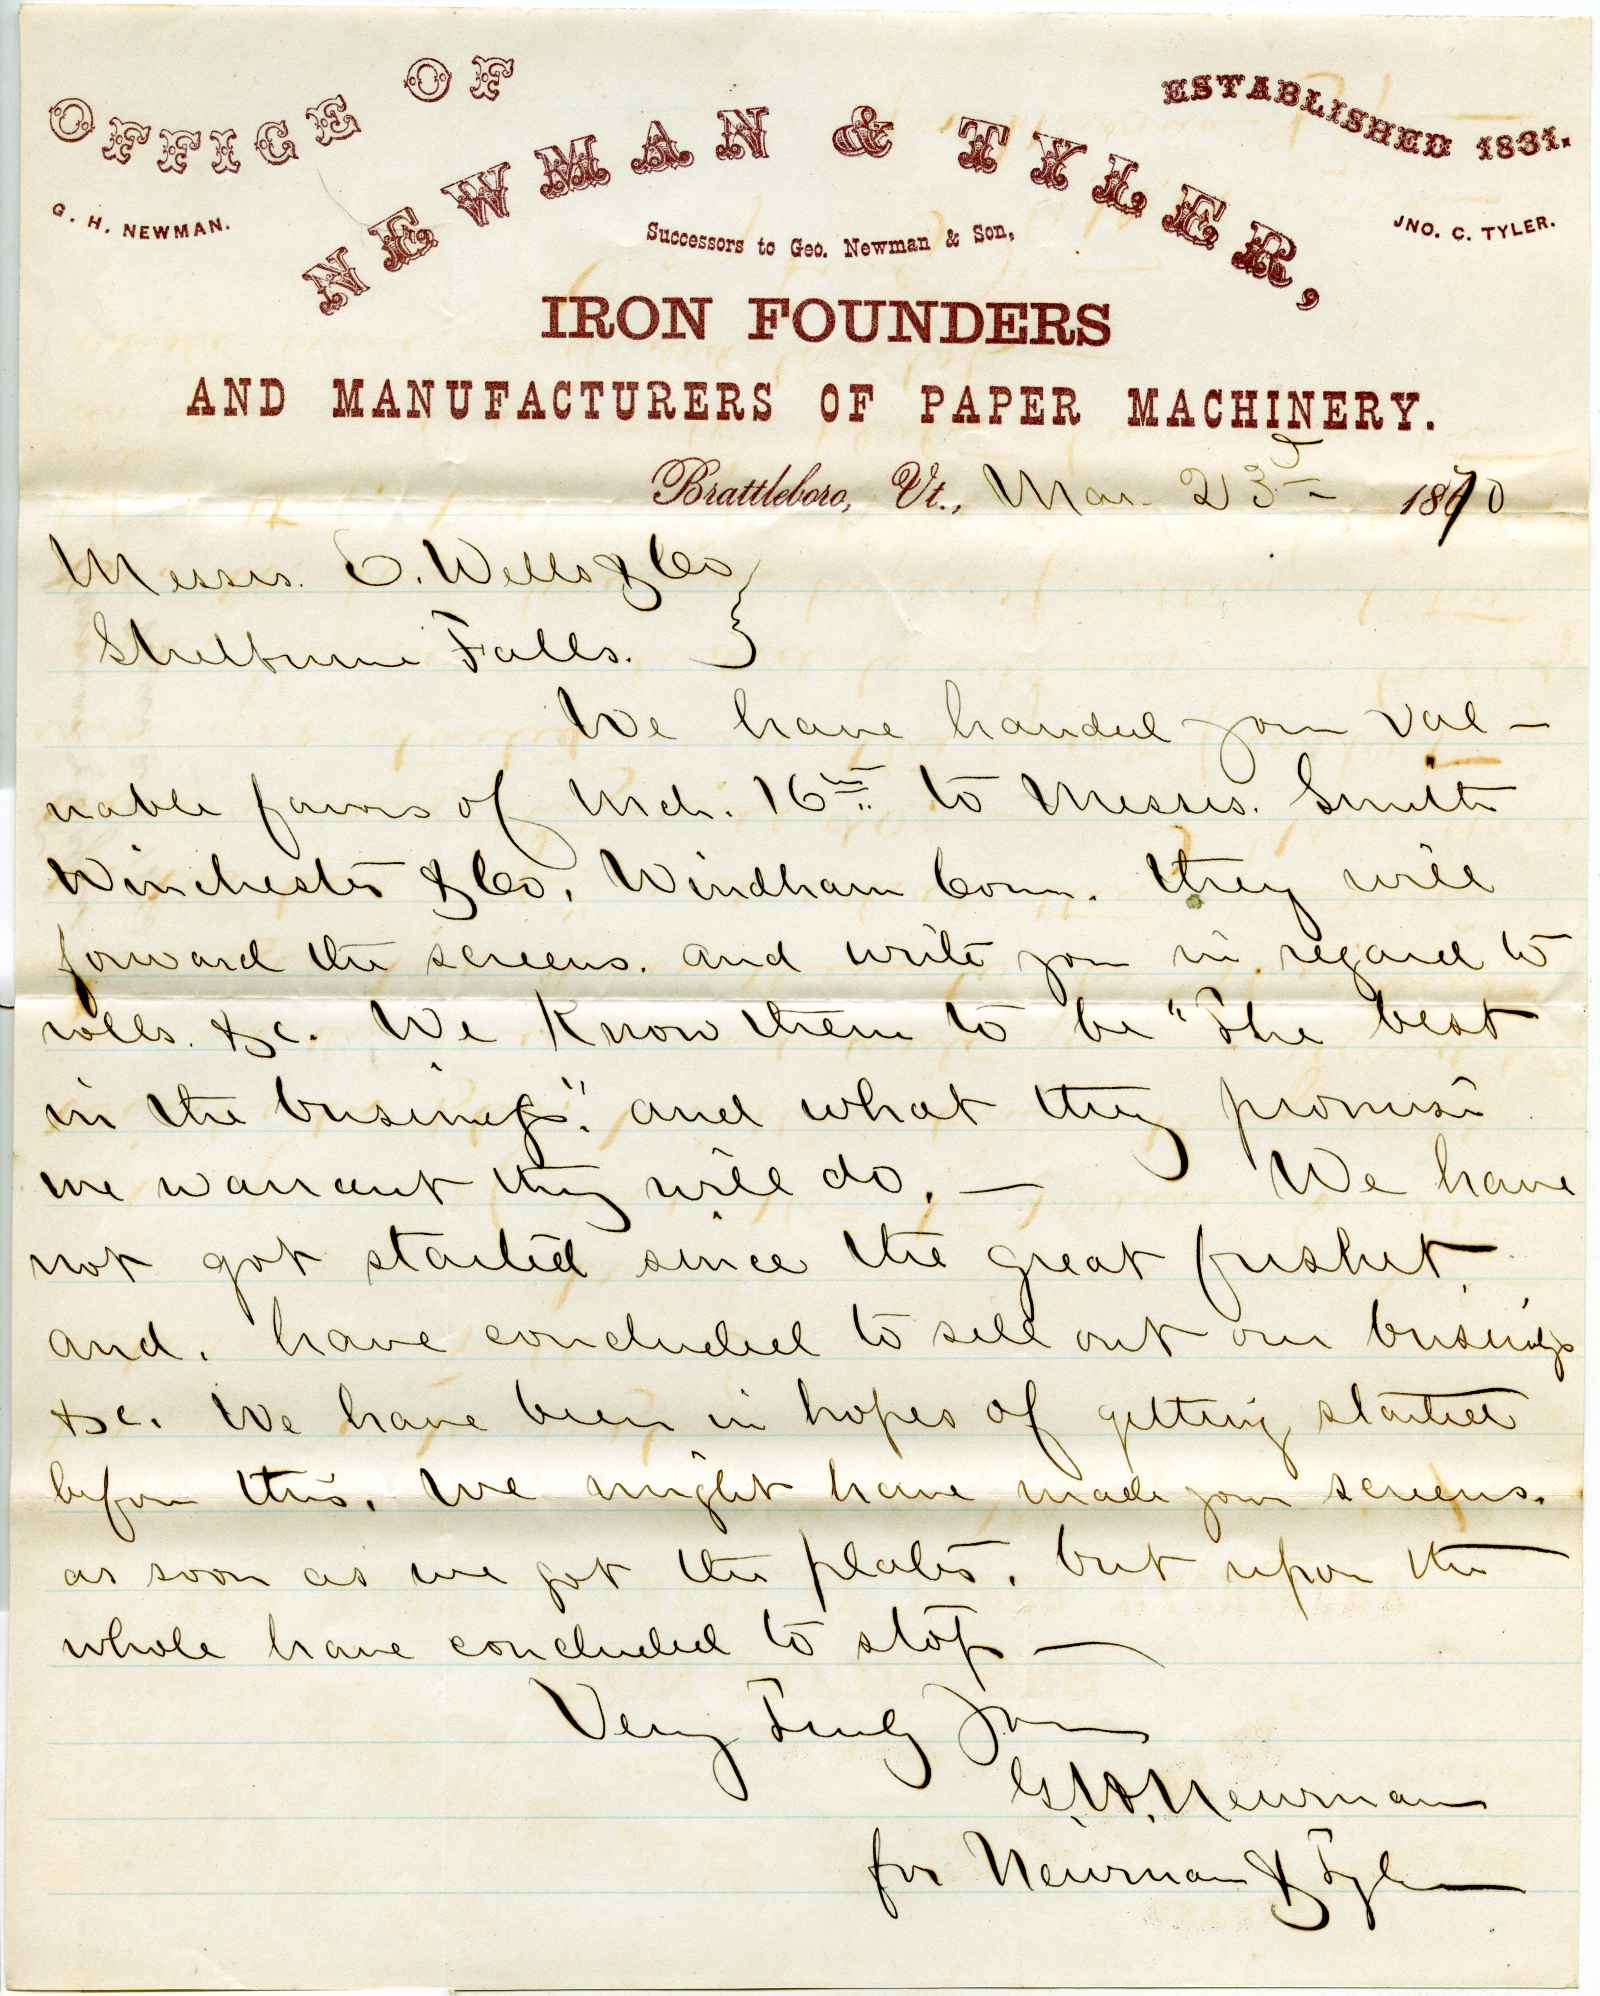 OFFICE OF
ESTABLISHED 1831.
NEWMAN & TYLER,
G. H. NEWMAN.
JNO. C. TYLER.
Successors to Geo. Newman & Son,
IRON FOUNDERS
AND MANUFACTURERS OF PAPER MACHINERY.
Brattleboro, Vt., Mar. 23d 1870
Messrs. E. Wells & Co
Shelburne Falls.
We have handed your val-
uable favors of Mch. 16th to Messrs. Smith
Winchester & Co, Windham Conn. they will
forward the screens. and write you in regard to
rolls. &c. We Know them to be "The best
in the business". and what they promise
we warrant they will do. — We have
not got started since the great freshet,
and. have concluded to sell out our business
&c. We have been in hopes of getting started
before this. We might have made your screens.
as soon as we got the plates. but upon the
whole have concluded to stop —
Very Truly Yours
G. H. Newman
for Newman & Tyler